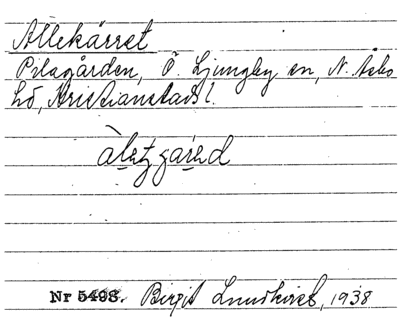 Allekärret
Pilagården, Ö. Ljungby sn, N. Åsbo
hd, Kristianstads l.
Nr 5498. Birgit Lundkvist, 1938